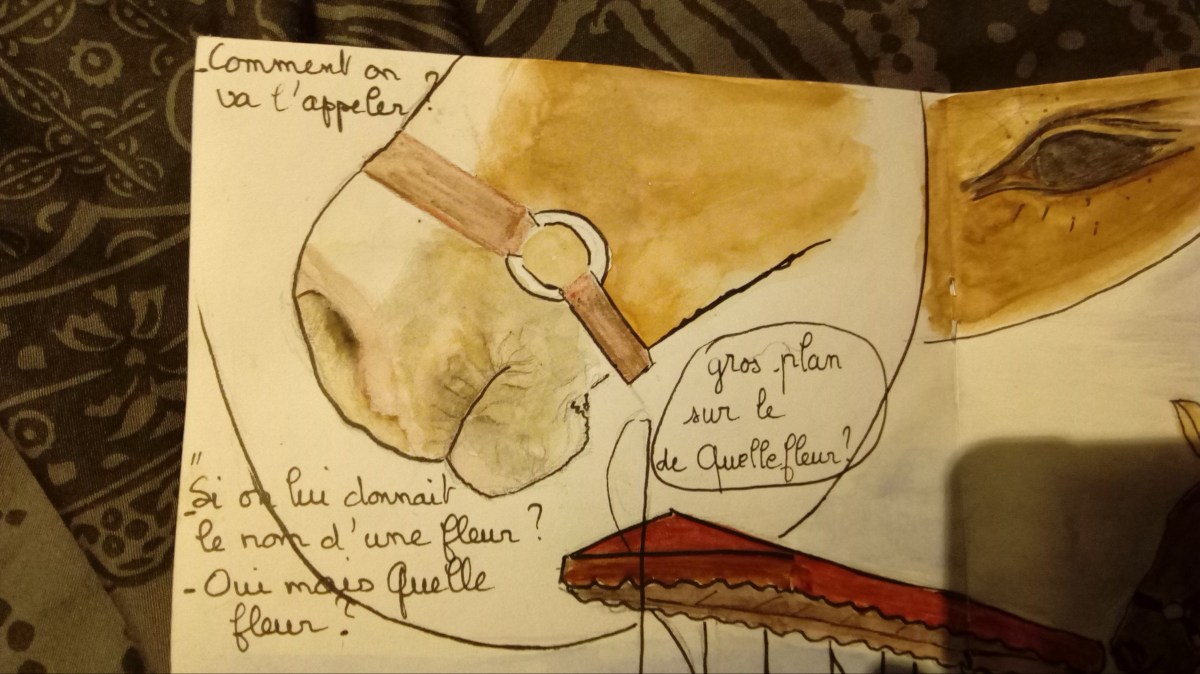 - Comment on
va l'appeler ?
gros plan
sur le
de Quellefleur?
"Si on lui donnait
le nom d'une fleur ?
- Oui mais Quelle
fleur ?